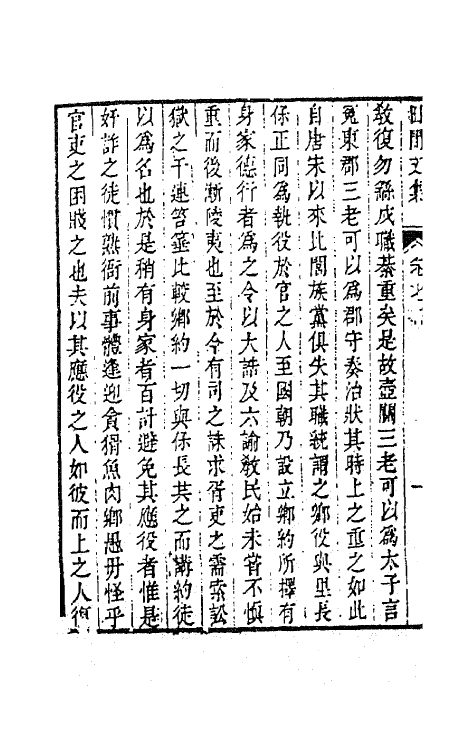 教復勿繇戍職綦重矣是故壺關三老可以爲太子言
冤東郡三老可以爲郡守奏治狀其時上之重之如此
自唐宋以來比閭族黨俱失其職統謂之鄉役與里長
保正同爲執役於官之人至國朝乃設立鄉約所擇有
身家德行者爲之令以大誥及六諭敎民始未嘗不慎
重而後漸陵夷也至於今有司之誅求胥吏之需索訟
獄之干連笞箠比較鄉約一切與保長共之而講約徒
以爲名也於是稍有身家者百計避免其應役者惟是
奸詐之徒慣熟衙前事體逢迎貪猾魚肉鄉愚毋怪乎
官吏之困賤之也夫以其應役之人如彼而上之人復